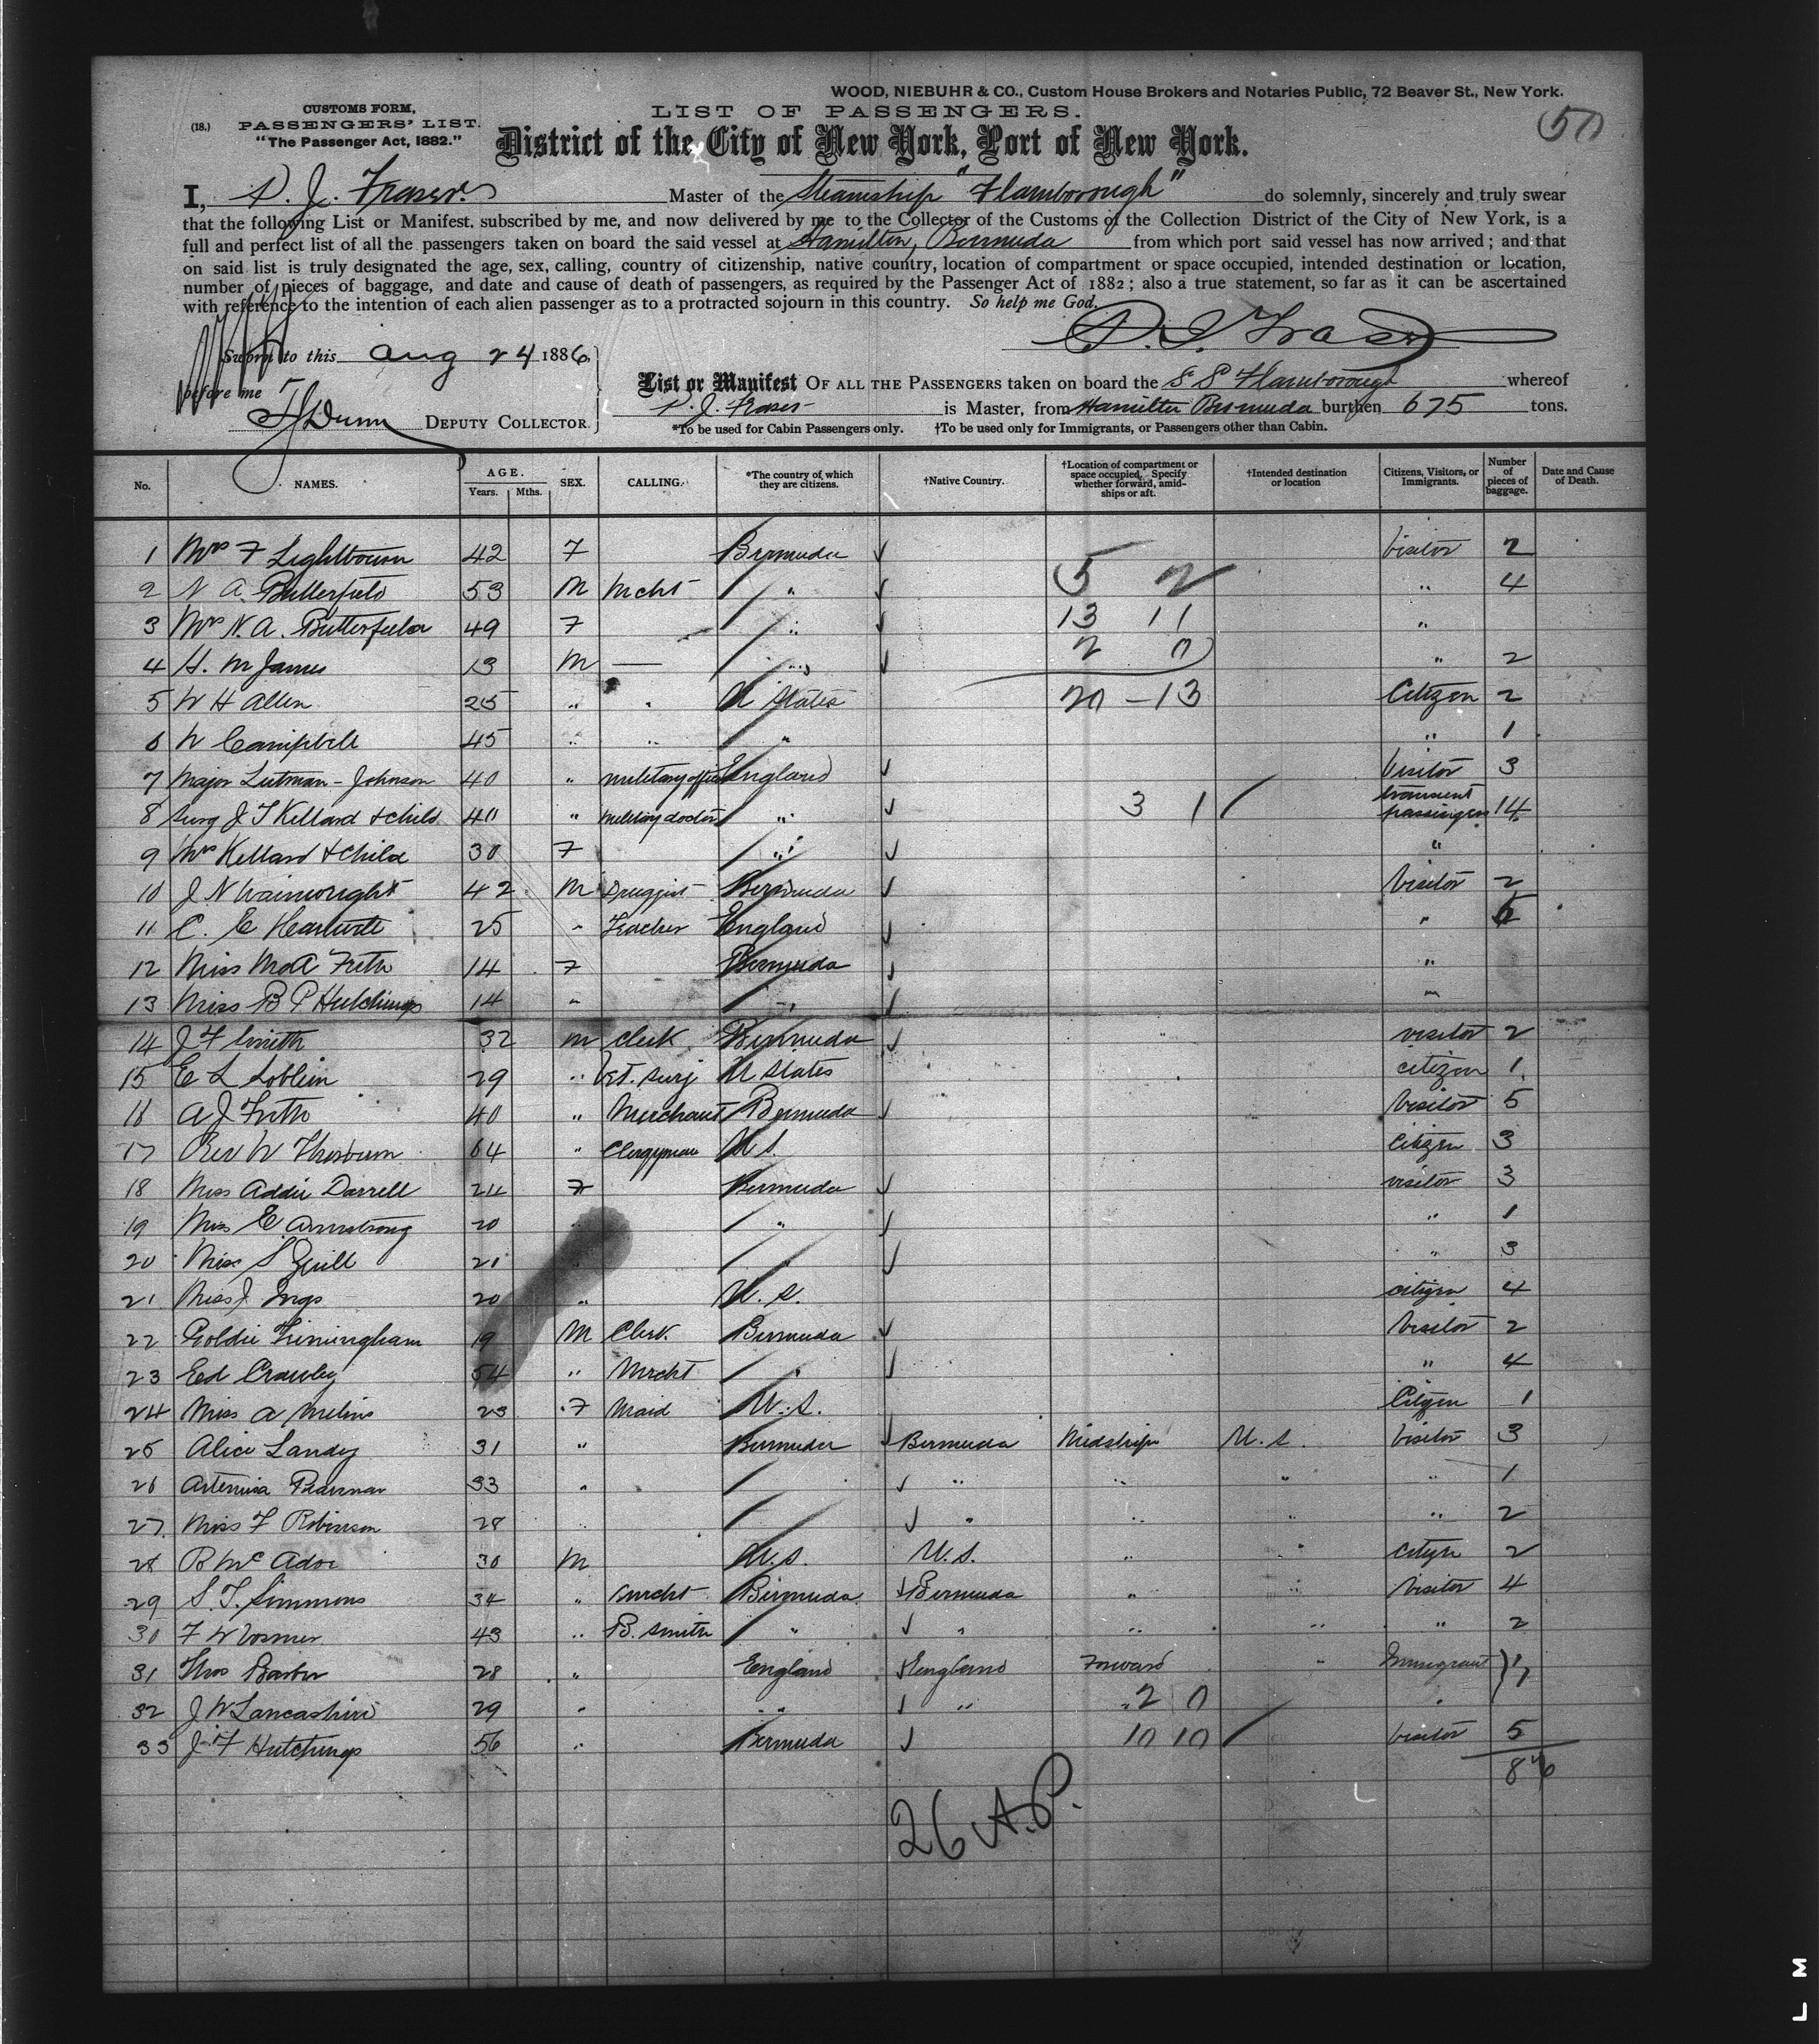 WOOD, NIEBUHR & CO., Custom House Brokers and Notaries Public, 72 Beaver St., New York.
CUSTOMS FORM,
LIST OF PASSENGERS.
(18.) PASSENGERS' LIST.
"The Passenger Act, 1882."
District of the City of New York, Port of New York.
I, P. J. Fraser Master of the Steamship "Flamborough" do solemnly, sincerely and truly swear
that the following List or Manifest, subscribed by me, and now delivered by me to the Collector of the Customs of the Collection District of the City of New York, is a
full and perfect list of all the passengers taken on board the said vessel at Hamilton, Bermuda from which port said vessel has now arrived; and that
on said list is truly designated the age, sex, calling, country of citizenship, native country, location of compartment or space occupied, intended destination or location,
number of pieces of baggage, and date and cause of death of passengers, as required by the Passenger Act of 1882; also a true statement, so far as it can be ascertained
with reference to the intention of each alien passenger as to a protracted sojourn in this country. So help me God.
Sworn to this Aug 24 1886,
before me
Dunn DEPUTY COLLECTOR.
List or Manifest OF ALL THE PASSENGERS taken on board the S S Flamborough whereof
P. J. Fraser is Master, from Hamilton Bermuda burthen 675 tons.
*To be used for Cabin Passengers only. †To be used only for Immigrants, or Passengers other than Cabin.
No. NAMES. AGE. Years. Mths. SEX. CALLING. *The country of which they are citizens. †Native Country. †Location of compartment or space occupied. Specify whether forward, amidships or aft. †Intended destination or location Citizens, Visitors, or Immigrants. Number of pieces of baggage. Date and Cause of Death.
1 Mrs F Lightbourn 42 F Bermuda Visitor 2
2 N A. Butterfield 53 M Mcht " 5 2 " 4
3 Mrs N. A. Butterfield 49 F " 13 11 "
4 H. M James 13 M — " 2 0 " 2
5 W H Allen 25 " " U States 20 - 13 Citizen 2
6 W Campbell 45 " " " " 1
7 Major Lutman-Johnson 40 " military officer England Visitor 3
8 Surg J T Kellard & child 40 " Military doctor " 3 1 transient passengers 14
9 Mrs Kellard & Child 30 F " "
10 J N Wainwright 42 M Druggist Bermuda Visitor 2
11 C. E 25 " Teacher England "
12 Miss M A Frith 14 F Bermuda "
13 Miss B P Hutchings 14 " " "
14 J F Smith 32 M Clerk Bermuda visitor 2
15 E L Loblein 29 " Vet. Surg U States citizen 1
16 A J Frith 40 " Merchant Bermuda Visitor 5
17 Rev W Thorburn 64 " Clergyman U S. Citizen 3
18 Miss Addie Darrell 24 F Bermuda visitor 3
19 Miss E Armstrong 20 " " " 1
20 Miss S Zuill 21 " " " 3
21 Miss J Ings 20 " U. S. citizen 4
22 Goldie Trimingham 19 M Clerk Bermuda Visitor 2
23 Ed Crawley 54 " Mrcht " " 4
24 Miss A 23 F Maid U. S. Citizen 1
25 Alice Landy 31 " Bermuda Bermuda Midships U. S. Visitor 3
26 Artemisa 33 " " " " " 1
27 Miss F Robinson 28 " " " " " 2
28 B McAdoe 30 M U. S. U. S. " " citizen 2
29 S. T. Simmons 34 " mrcht Bermuda Bermuda " " Visitor 4
30 F W 43 " B. smith " " " " " 2
31 Thos Barber 28 " England England Forward " Immigrant 1
32 J W Lancashire 29 " " " 2 0 "
33 J F Hutchings 56 " Bermuda 10 10 visitor 5
86
26 A.P.
L M